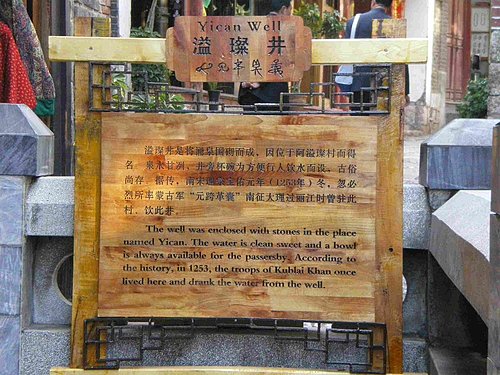 Yican Well
溢璨井
溢璨井是将涌泉围砌而成，因位于阿溢璨村而得
名。泉水甘冽，井旁怀碗为方便行人饮水而设，古俗
尚存。据传，南宋理宗宝佑元年（1253年）冬，忽必
烈所率蒙古军“元跨革囊”南征大理过丽江时曾驻此
村，饮此井。
The well was enclosed with stones in the place
named Yican. The water is clean sweet and a bowl
is always available for the passersby. According to
the history, in 1253, the troops of Kublai Khan once
lived here and drank the water from the well.